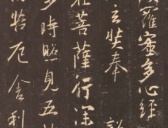 羅蜜多心經
玄奘奉 詔
在菩薩行深
多時照見五
苦厄舍利